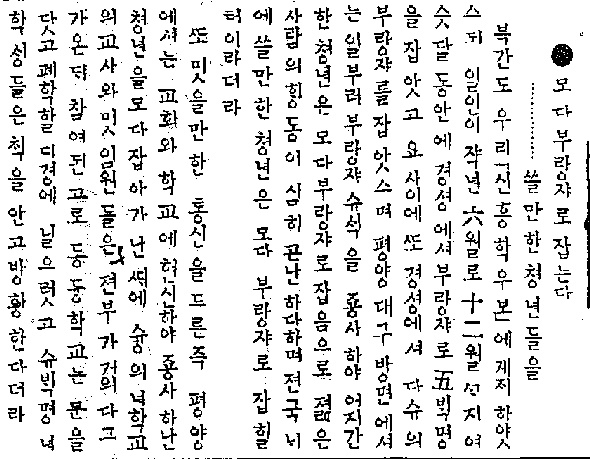 ●모다부랑쟈로잡는다
………쓸만한청년들을
북간도 우리신흥학우본에게재하얏
스되 일인이 작년 六월로 十二월신지 여
슷달 동안에 경셩에셔 부랑쟈로 五빅명
을 잡앗고 요사이에 또 경셩에셔 다슈의
부랑쟈를 잡앗스며 평양 대구 방면에셔
는 일부러 부랑쟈 슈석을 죵사하야 어지간
한 청년은 모다 부랑쟈로 잡음으로 졂은
사람의 힝동이 심히 곤난하다하며 전국니
에 쓸만한 청년은 모다 부랑쟈로 잡힐
터이라더라
또 밋을만한 통신을 드른즉 평양
에셔는 교회와 학교에 헌신하야 죵사하난
청년을 모다 잡아가 난 씨에 슝의녀학교
의 교사와 밋 임원들은 젼부가 거의 다 그
가온대 참여된 고로 동 학교는 문을
닷고 폐학할 디경에 닐으럿고 슈빅명 녀
학싱들은 책을 안고 방황한다더라